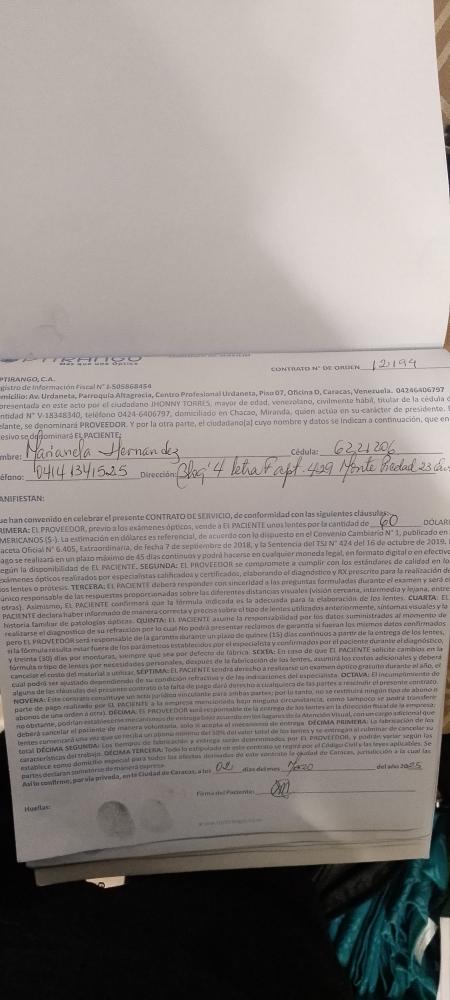 CONTRATO N° DE ORDEN 12194
PTIRANGO, C.A.
gistro de Información Fiscal N° J-505868454
micilio: Av. Urdaneta, Parroquia Altagracia, Centro Profesional Urdaneta, Piso 07, Oficina D, Caracas, Venezuela. 04246406797
presentada en este acto por el ciudadano JHONNY TORRES, mayor de edad, venezolano, civilmente hábil, titular de la cédula d
ntidad N° V-18348340, teléfono 0424-6406797, domiciliado en Chacao, Miranda, quien actúa en su carácter de presidente.
elante, se denominará PROVEEDOR. Y por la otra parte, el ciudadano(a) cuyo nombre y datos se indican a continuación, que en
esivo se denominará EL PACIENTE:
mbre: Marianela Hernandez Cédula: 6221206
léfono: 04141341525 Dirección: Bloq 4 letra F apt. 429 Monte Piedad 23
ANIFIESTAN:
ue han convenido en celebrar el presente CONTRATO DE SERVICIO, de conformidad con las siguientes cláusulas:
RIMERA: EL PROVEEDOR, previo a los exámenes ópticos, vende a EL PACIENTE unos lentes por la cantidad de 60 DÓLARE
MERICANOS ($-). La estimación en dólares es referencial, de acuerdo con lo dispuesto en el Convenio Cambiario N° 1, publicado en
aceta Oficial N° 6.405, Extraordinaria, de fecha 7 de septiembre de 2018, y la Sentencia del TSJ N° 424 del 16 de octubre de 2019.
ago se realizará en un plazo máximo de 45 días continuos y podrá hacerse en cualquier moneda legal, en formato digital o en efectivo
egún la disponibilidad de EL PACIENTE. SEGUNDA: EL PROVEEDOR se compromete a cumplir con los estándares de calidad en lo
exámenes ópticos realizados por especialistas calificados y certificados, elaborando el diagnóstico y RX prescrito para la realización de
os lentes o prótesis. TERCERA: EL PACIENTE deberá responder con sinceridad a las preguntas formuladas durante el examen y será e
único responsable de las respuestas proporcionadas sobre las diferentes distancias visuales (visión cercana, intermedia y lejana, entre
otras). Asimismo, EL PACIENTE confirmará que la fórmula indicada es la adecuada para la elaboración de los lentes. CUARTA: EL
PACIENTE declara haber informado de manera correcta y precisa sobre el tipo de lentes utilizados anteriormente, síntomas visuales y la
historia familiar de patologías ópticas. QUINTA: EL PACIENTE asume la responsabilidad por los datos suministrados al momento de
realizarse el diagnóstico de su refracción por lo cual No podrá presentar reclamos de garantía si fueran los mismos datos confirmados
pero EL PROVEEDOR será responsable de la garantía durante un plazo de quince (15) días continuos a partir de la entrega de los lentes,
si la fórmula resulta estar fuera de los parámetros establecidos por el especialista y confirmados por el paciente durante el diagnóstico,
y treinta (30) días por monturas, siempre que sea por defecto de fábrica. SEXTA: En caso de que EL PACIENTE solicite cambios en la
fórmula o tipo de lentes por necesidades personales, después de la fabricación de los lentes, asumirá los costos adicionales y deberá
cancelar el costo del material a utilizar. SÉPTIMA: EL PACIENTE tendrá derecho a realizarse un examen óptico gratuito durante el año, el
cual podrá ser ajustado dependiendo de su condición refractiva y de las indicaciones del especialista. OCTAVA: El incumplimiento de
alguna de las cláusulas del presente contrato o la falta de pago dará derecho a cualquiera de las partes a rescindir el presente contrato.
NOVENA: Este contrato constituye un acto jurídico vinculante para ambas partes; por lo tanto, no se restituirá ningún tipo de abono o
parte de pago realizado por EL PACIENTE a la empresa mencionada bajo ninguna circunstancia, como tampoco se podrá transferir
abonos de una orden a otra). DÉCIMA: EL PROVEEDOR será responsable de la entrega de los lentes en la dirección fiscal de la empresa;
no obstante, podrían establecerse mecanismos de entrega bajo acuerdo en los lugares de la Atención Visual, con un cargo adicional que
deberá cancelar el paciente de manera voluntaria, solo si acepta el mecanismo de entrega. DÉCIMA PRIMERA: La fabricación de los
lentes comenzará una vez que se reciba un abono mínimo del 50% del valor total de los lentes y se entregan al culminar de cancelar su
total DÉCIMA SEGUNDA: Los tiempos de fabricación y entrega serán determinados por EL PROVEEDOR, y podrán variar según las
características del trabajo. DÉCIMA TERCERA: Todo lo estipulado en este contrato se regirá por el Código Civil y las leyes aplicables. Se
establece como domicilio especial para todos los efectos derivados de este contrato la ciudad de Caracas, jurisdicción a la cual las
partes declaran someterse de manera expresa.
Así lo confirmo, por vía privada, en la Ciudad de Caracas, a los 02 días del mes Mayo del año 2025
Firma del Paciente:
Huellas: